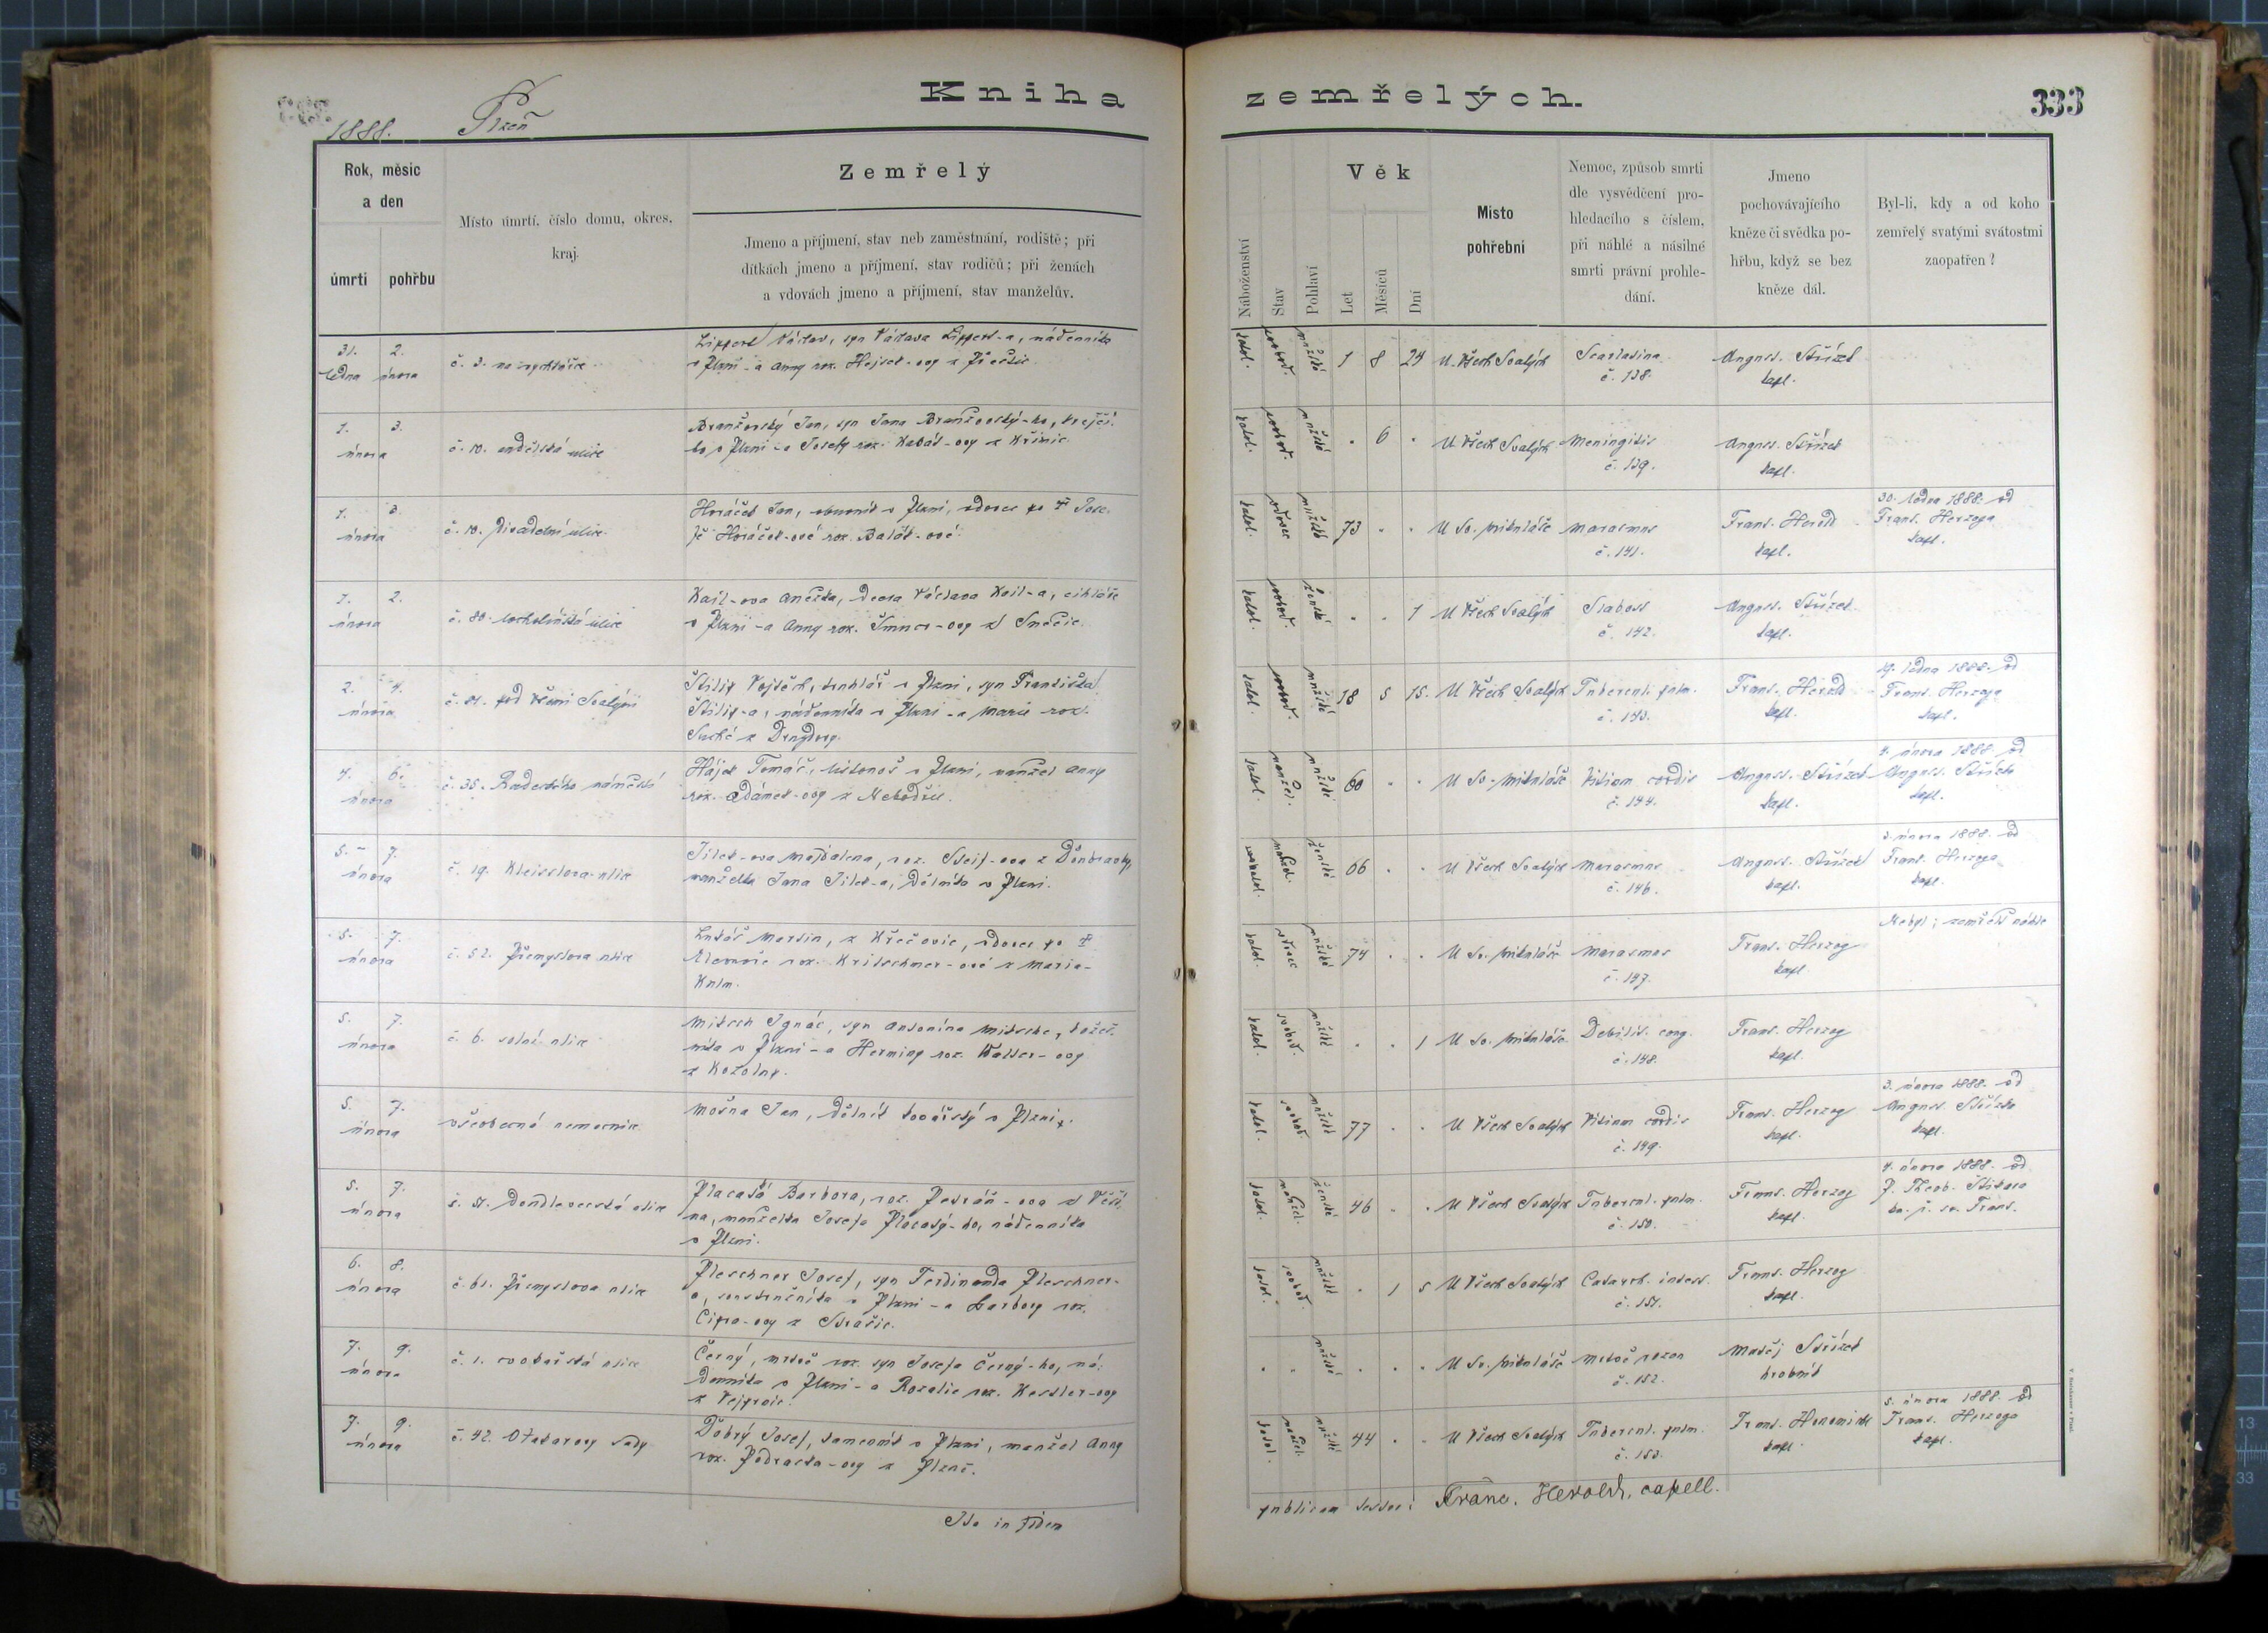 1888. Plzeň
Kniha zemřelých.
333
Rok, měsíc
a den
úmrtí
pohřbu
Místo úmrtí, číslo domu, okres,
kraj.
Zemřelý
Jmeno a příjmení, stav neb zaměstnání, rodiště; při
dítkách jmeno a příjmení, stav rodičů; při ženách
a vdovách jmeno a příjmení, stav manželův.
Náboženství
Stav
Pohlaví
Věk
Let
Měsíců
Dní
Místo
pohřební
Nemoc, způsob smrti
dle vysvědčení pro-
hledacího s číslem,
při náhlé a násilné
smrti právní prohle-
dání.
Jmeno
pochovávajícího
kněze či svědka po-
hřbu, když se bez
kněze dál.
Byl-li, kdy a od koho
zemřelý svatými svátostmi
zaopatřen?
31. 2.
ledna února
č. 3. na rychtářce
Lippert Václav, syn Václava Lippert-a, nádenníka
v Plzni - a Anny roz. Hejsek-ovy z Přeštic
katol. svobod. mužské 1 8 24
U Všech Svatých
Scarlatina
č. 138.
August. Střízek
kapl.
1. 3.
února
č. 10. andělská ulice
Branžovský Jan, syn Jana Branžovský-ho, krejčí-
ho v Plzni - a Josefy roz. Kabát-ovy z Křimic
katol. svobod. mužské . 6 .
U Všech Svatých
Meningitis
č. 139.
August. Střízek
kapl.
1. 3.
února
č. 10. Divadelní ulice
Horáček Jan, obuvník v Plzni, vdovec po † Jose-
fě Horáček-ové roz. Balák-ové.
katol. vdovec mužské 73 . .
U Sv. Mikuláše
Marasmus
č. 141.
Frant. Herold
kapl.
30. ledna 1888. od
Frant. Herzoga
kapl.
1. 2.
února
č. 80. lochotínská ulice
Kail-ova Anežka, dcera Václava Kail-a, cihláře
v Plzni - a Anny roz.
katol. svobod. ženské . . 1
U Všech Svatých
Slabost
č. 142.
August. Střízek
kapl.
2. 4.
února
č. 81. pod Všemi Svatými
Štilip Vojtěch, truhlář v Plzni, syn Františka
Štilip-a, nádenníka v Plzni - a Marie roz.
Suché z
katol. svobod. mužské 18 5 15.
U Všech Svatých
Tubercul. pulm.
č. 143.
Frant. Herold
kapl.
19. ledna 1888. od
Frant. Herzoga
kapl.
4. 6.
února
č. 35. Radeckého náměstí
Hájek Tomáš, listonoš v Plzni, manžel Anny
roz. Adámek-ovy z
katol. manžel. mužské 60 . .
U Sv. Mikuláše
Vitium cordis
č. 144.
August. Střízek
kapl.
4. února 1888. od
August. Střízka
kapl.
5. 7.
února
č. 19. Kleisslova ulice
Jílek-ova Majdalena, roz. z Doubravky,
manželka Jana Jílek-a, dělníka v Plzni.
katol. manžel. ženské 66 . .
U Všech Svatých
Marasmus
č. 146.
August. Střízek
kapl.
3. února 1888. od
Frant. Herzoga
kapl.
5. 7.
února
č. 52. Přemyslova ulice
Lukáš Martin, z Křečovic, vdovec po †
Eleonoře roz. Kritschmer-ové z Maria-
Kulm.
katol. vdovec mužské 74 . .
U Sv. Mikuláše
Marasmus
č. 147.
Frant. Herzog
kapl.
Nebyl; zemřelť náhle
5. 7.
února
č. 6. solní ulice
Mitsch Ignác, syn Antonína Mitsche, kožeš-
níka v Plzni - a Herminy roz. Walter-ovy
z Kozolup.
katol. svobod. mužské . . 1
U Sv. Mikuláše
Debilit. cong.
č. 148.
Frant. Herzog
kapl.
5. 7.
února
všeobecná nemocnice
Mošna Jan, dělník továrský v Plzni.
katol. svobod. mužské 77 . .
U Všech Svatých
Vitium cordis
č. 149.
Frant. Herzog
kapl.
3. února 1888. od
August. Střízka
kapl.
5. 7.
února
č. 51. Doudlevecská ulice
Placatá Barbora, roz. Petráň-ova z
manželka Josefa Placatý-ho, nádenníka
v Plzni.
katol. manžel. ženské 46 . .
U Všech Svatých
Tubercul. pulm.
č. 150.
Frant. Herzog
kapl.
4. února 1888. od
P. Theob.
sv. Frant.
6. 8.
února
č. 61. Přemyslova ulice
Pleschner Josef, syn Ferdinanda Pleschner-
a, soustružníka v Plzni - a Barbory roz.
Cipra-ovy z Strašic.
katol. svobod. mužské . 1 5
U Všech Svatých
Catarrh. intest.
č. 151.
Frant. Herzog
kapl.
7. 9.
února
č. 1. ulice
Černý, mrtvě roz. syn Josefa Černý-ho, ná-
denníka v Plzni - a Rozalie roz. Kessler-ovy
z Vejprnic.
. . mužské . . .
U Sv. Mikuláše
mrtvě rozen
č. 152.
Matěj Střízek
hrobník
7. 9.
února
č. 42. Otakarovy sady
Dobrý Josef, kameník v Plzni, manžel Anny
roz. z Plzně.
katol. manžel. mužské 44 . .
U Všech Svatých
Tubercul. pulm.
č. 153.
Frant.
kapl.
5. února 1888. od
Frant. Herzoga
kapl.
Ita in fidem publicam testor: Franc. Herold, capell.